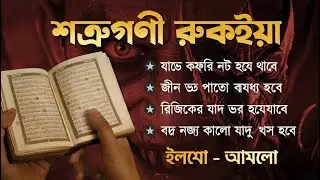 শত্রুগণী রুকইয়া
যাভে কফরি নট হযে থাবে
জীন ভূত পাতো ব্যযধ্য হবে
রিজিকের যাদ ভর হযেযাবে
বদ্ব নজ্য কালো যাদু, খস হবে
ইলমো – আমলো